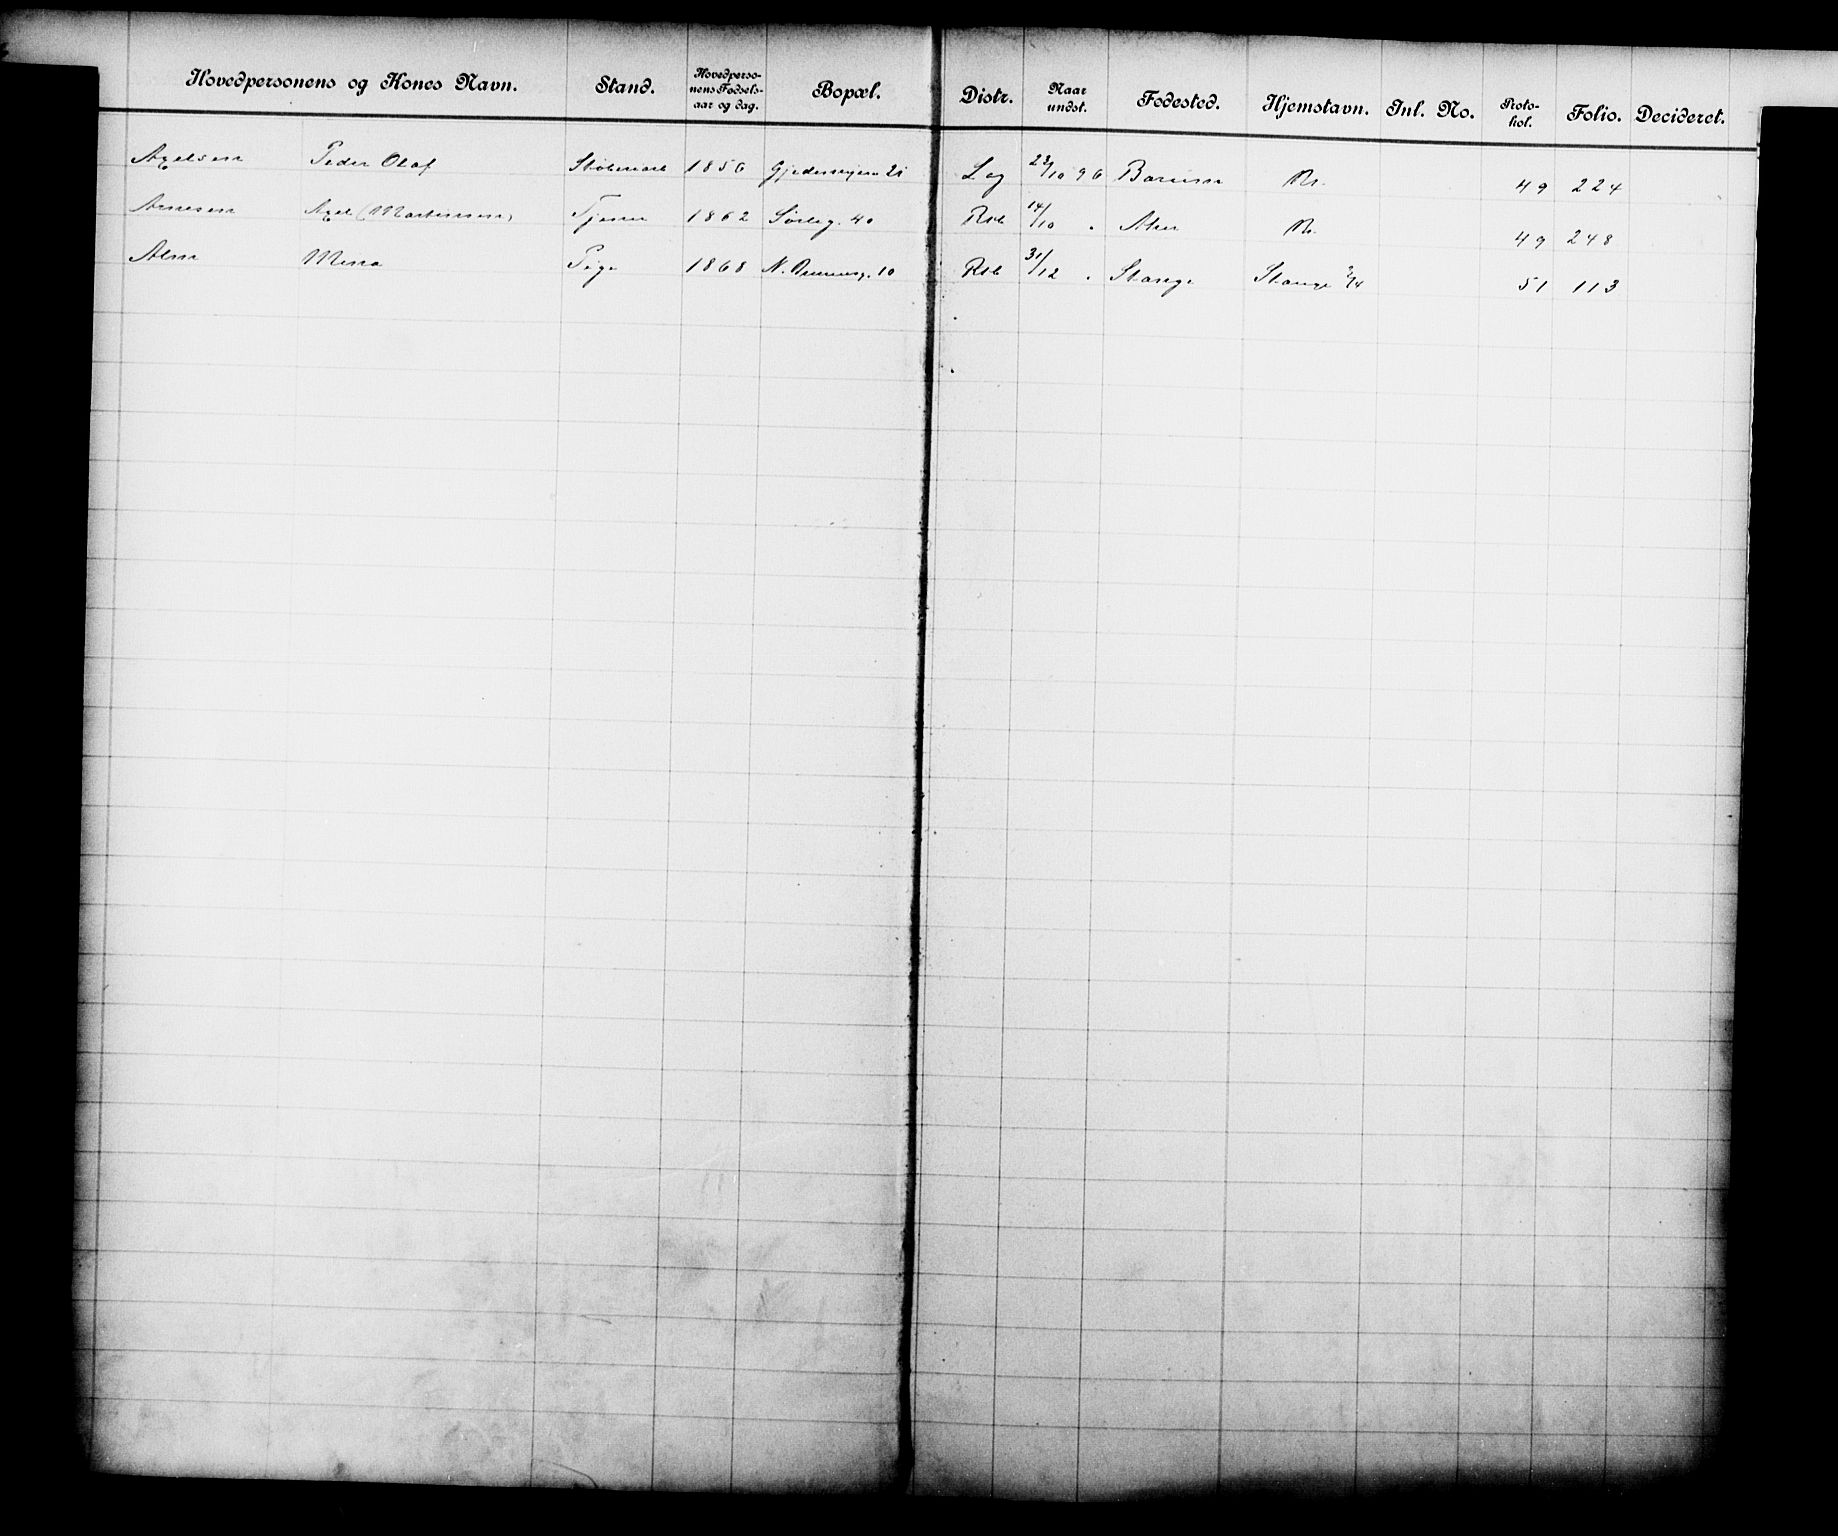 Hovedpersonens og Kones Navn. Stand. Hovedpersonens Fødselsaar og dag. Bopæl. Distr. Naar undst. Fødested. Hjemstavn. Inl. No. Protokol. Folio. Decideret.
Axelsen Peder Olaf Støberiarb 1856 21 Lag 10 96 Bærum 49 224
Arnesen Axel (Martinsen) Tjener 1862 Sørlig. 40 Rsb 14/10 " Aker 49 248
Alm Mina Pige 1868 10 Rsb 31/12 " Stange Stange 51 113